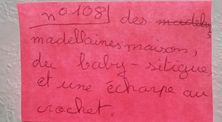 n° 108 | des
madellaines maison,
du baby-sitigue
et une écharpe au
crochet.